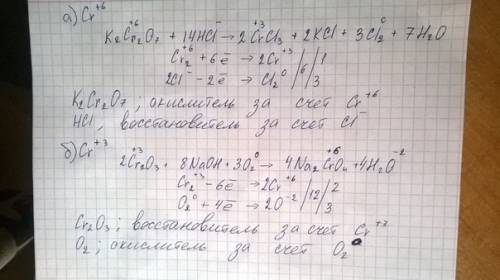 а) Cr⁺⁶
K₂Cr₂⁺⁶O₇ + 14HCl⁻ → 2Cr⁺³Cl₃ + 2KCl + 3Cl₂⁰ + 7H₂O
Cr₂⁺⁶ + 6ē → 2Cr⁺³ /6/ 1
2Cl⁻ − 2ē → Cl₂⁰ /6/ 3
K₂Cr₂O₇; окислитель за счет Cr⁺⁶
HCl, восстановитель за счет Cl⁻
б) Cr⁺³
2Cr₂⁺³O₃ + 8NaOH + 3O₂⁰ → 4Na₂Cr⁺⁶O₄ + 4H₂O⁻²
Cr₂⁺³ − 6ē → 2Cr⁺⁶ /12/ 2
O₂⁰ + 4ē → 2O⁻² /12/ 3
Cr₂O₃; восстановитель за счет Cr⁺³
O₂; окислитель за счет O₂⁰